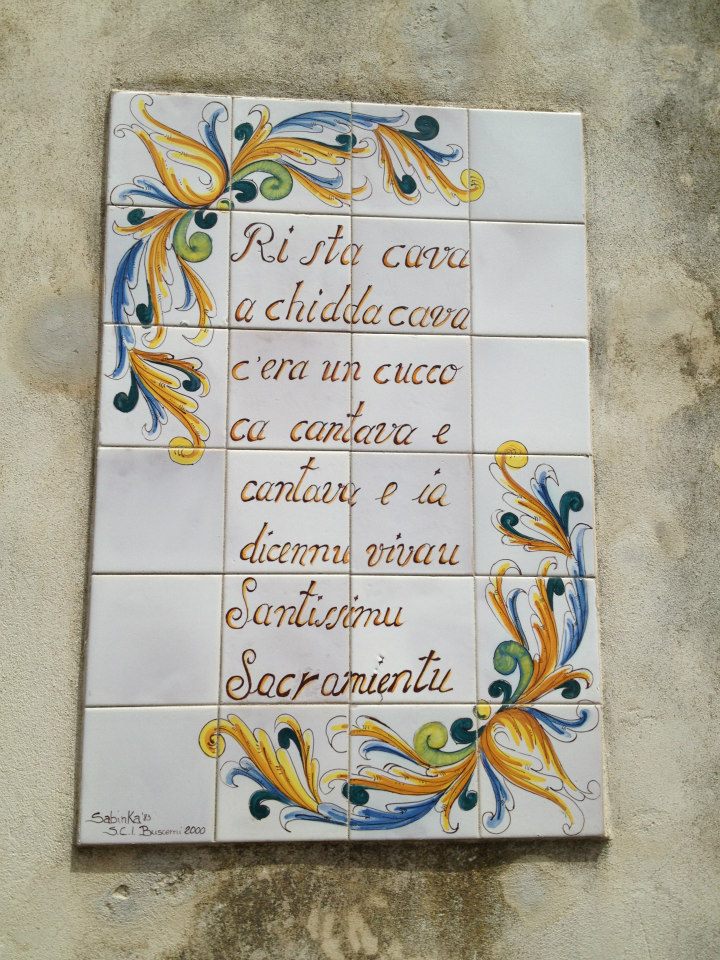 Ri sta cava
a chidda cava
c'era un cucco
ca cantava e
cantava e ia
dicennu vivau
Santissimu
Sacramientu
SabinKa
S.C.I. Buscemi 2000